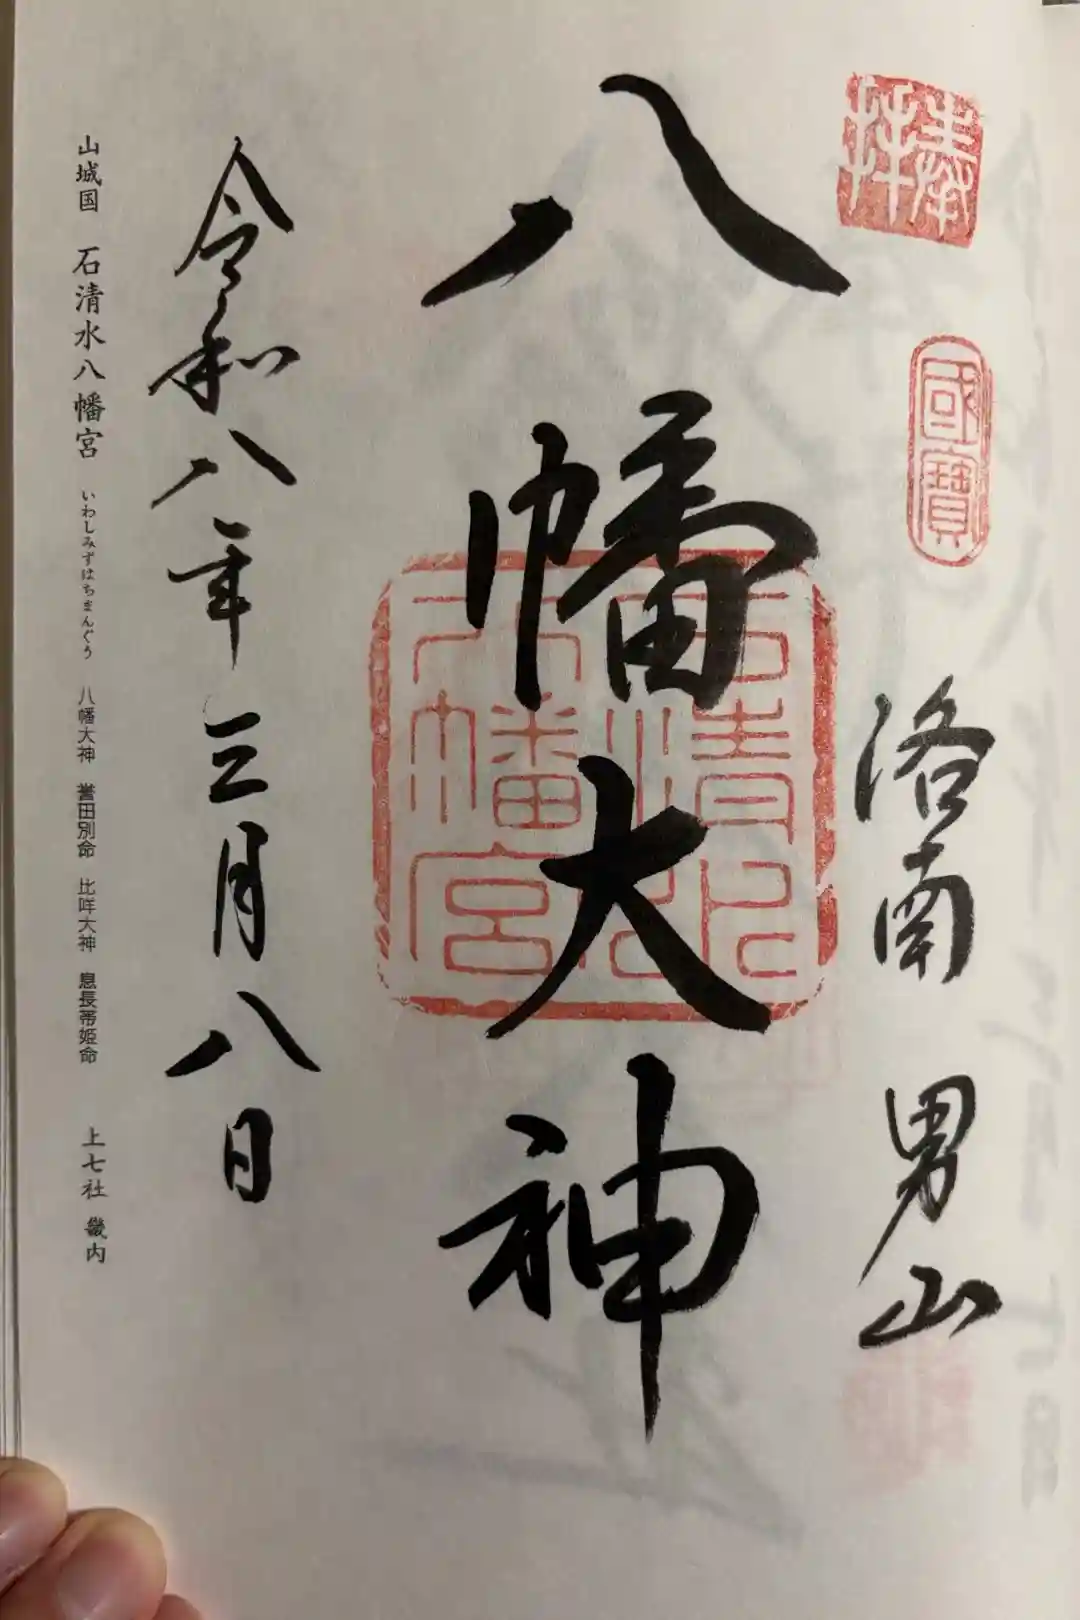 奉拝
國寶
洛南 男山
八幡大神
石清水八幡宮
令和八年三月八日
山城国 石清水八幡宮 いわしみずはちまんぐう 八幡大神 誉田別命 比咩大神 息長帯姫命 上七社 畿内